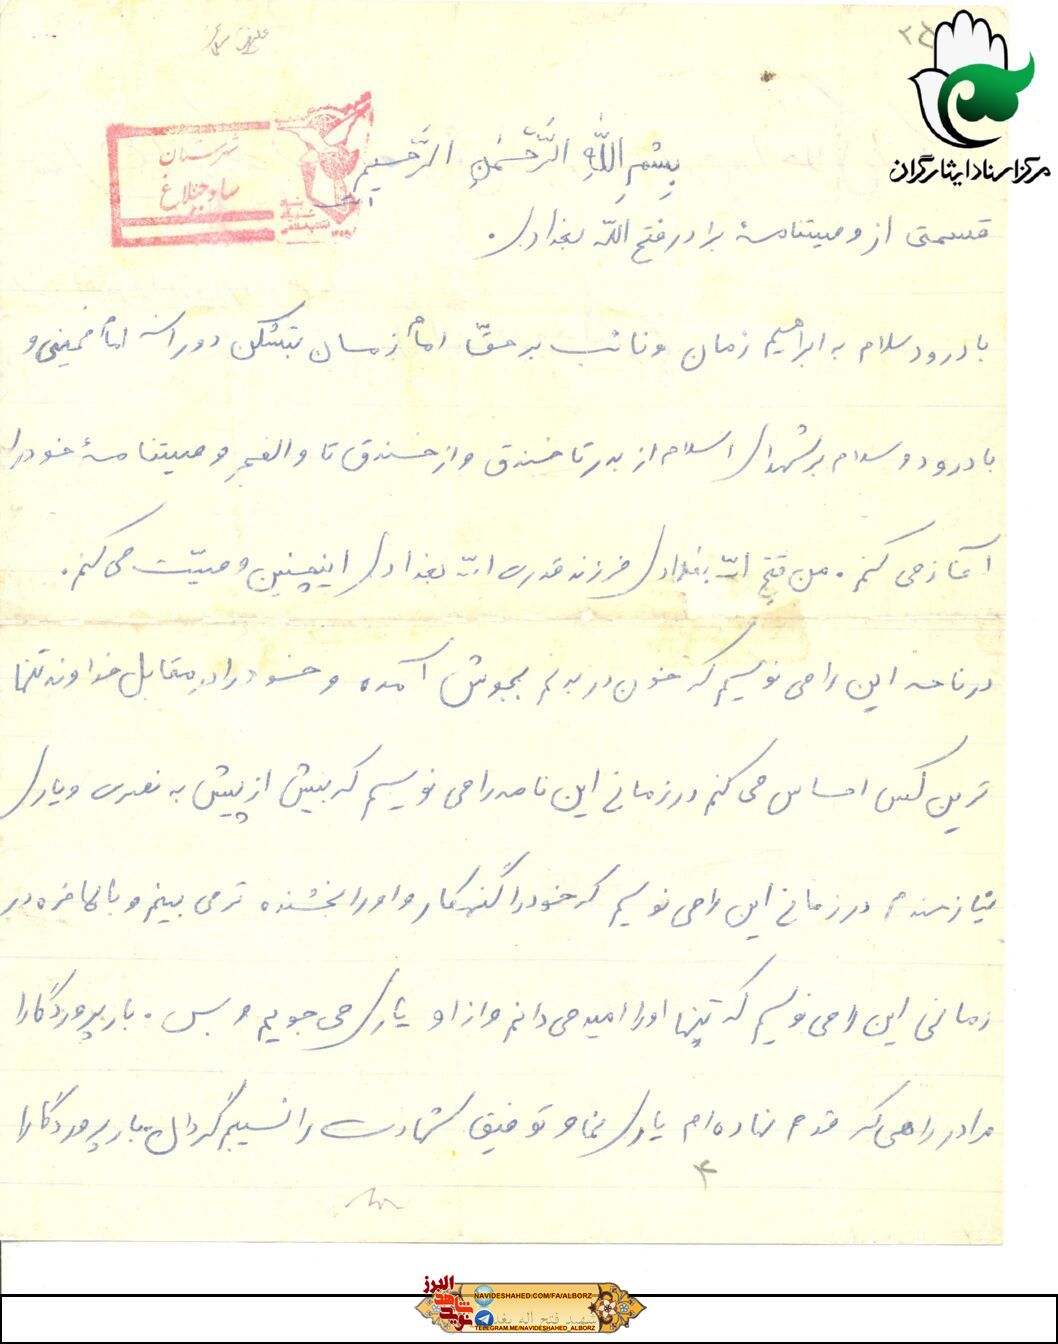 مرکز اسناد ایثارگران
شهرستان
ساوجبلاغ
بِسْمِ اللَّهِ الرَّحْمَنِ الرَّحَیمِ
قسمتی از وصیتنامهٔ برادر فتح اللّه بغدادی.
با درود سلام به ابراهیم زمان و نائب بر حقّ امام زمان بتشکن دوران امام خمینی و
با درود و سلام بر شهدای اسلام از بدر تا خندق و از خندق تا والفجر وصیتنامهٔ خود را
آغاز می کنم. من فتح اللّه بغدادی فرزند قدرت اللّه بغدادی اینچنین وصیّت می کنم.
در نامه این را می نویسم که خون در بدنم بجوش آمده و خود را در مقابل خداوند تنها
ترین کس احساس می کنم در زمانی این نامه را می نویسم که بیش از پیش به نصرت و یاری
نیازمندم در زمانی این را می نویسم که خود را گنهکار و او را بخشنده تر می بینم و بالاخره در
زمانی این را می نویسم که تنها او را امید می دانم و از او یاری می جویم و بس. بار پروردگارا
مرا در راهی که قدم نهاده ام یاری نما و توفیق شهادت را نسیبم گردان بار پروردگارا
۴
نوید شاهد البرز
NAVIDESHAHED.COM/FA/ALBORZ
TELEGRAM.ME/NAVIDESHAHED_ALBORZ
شهید فتح اله بغدادی